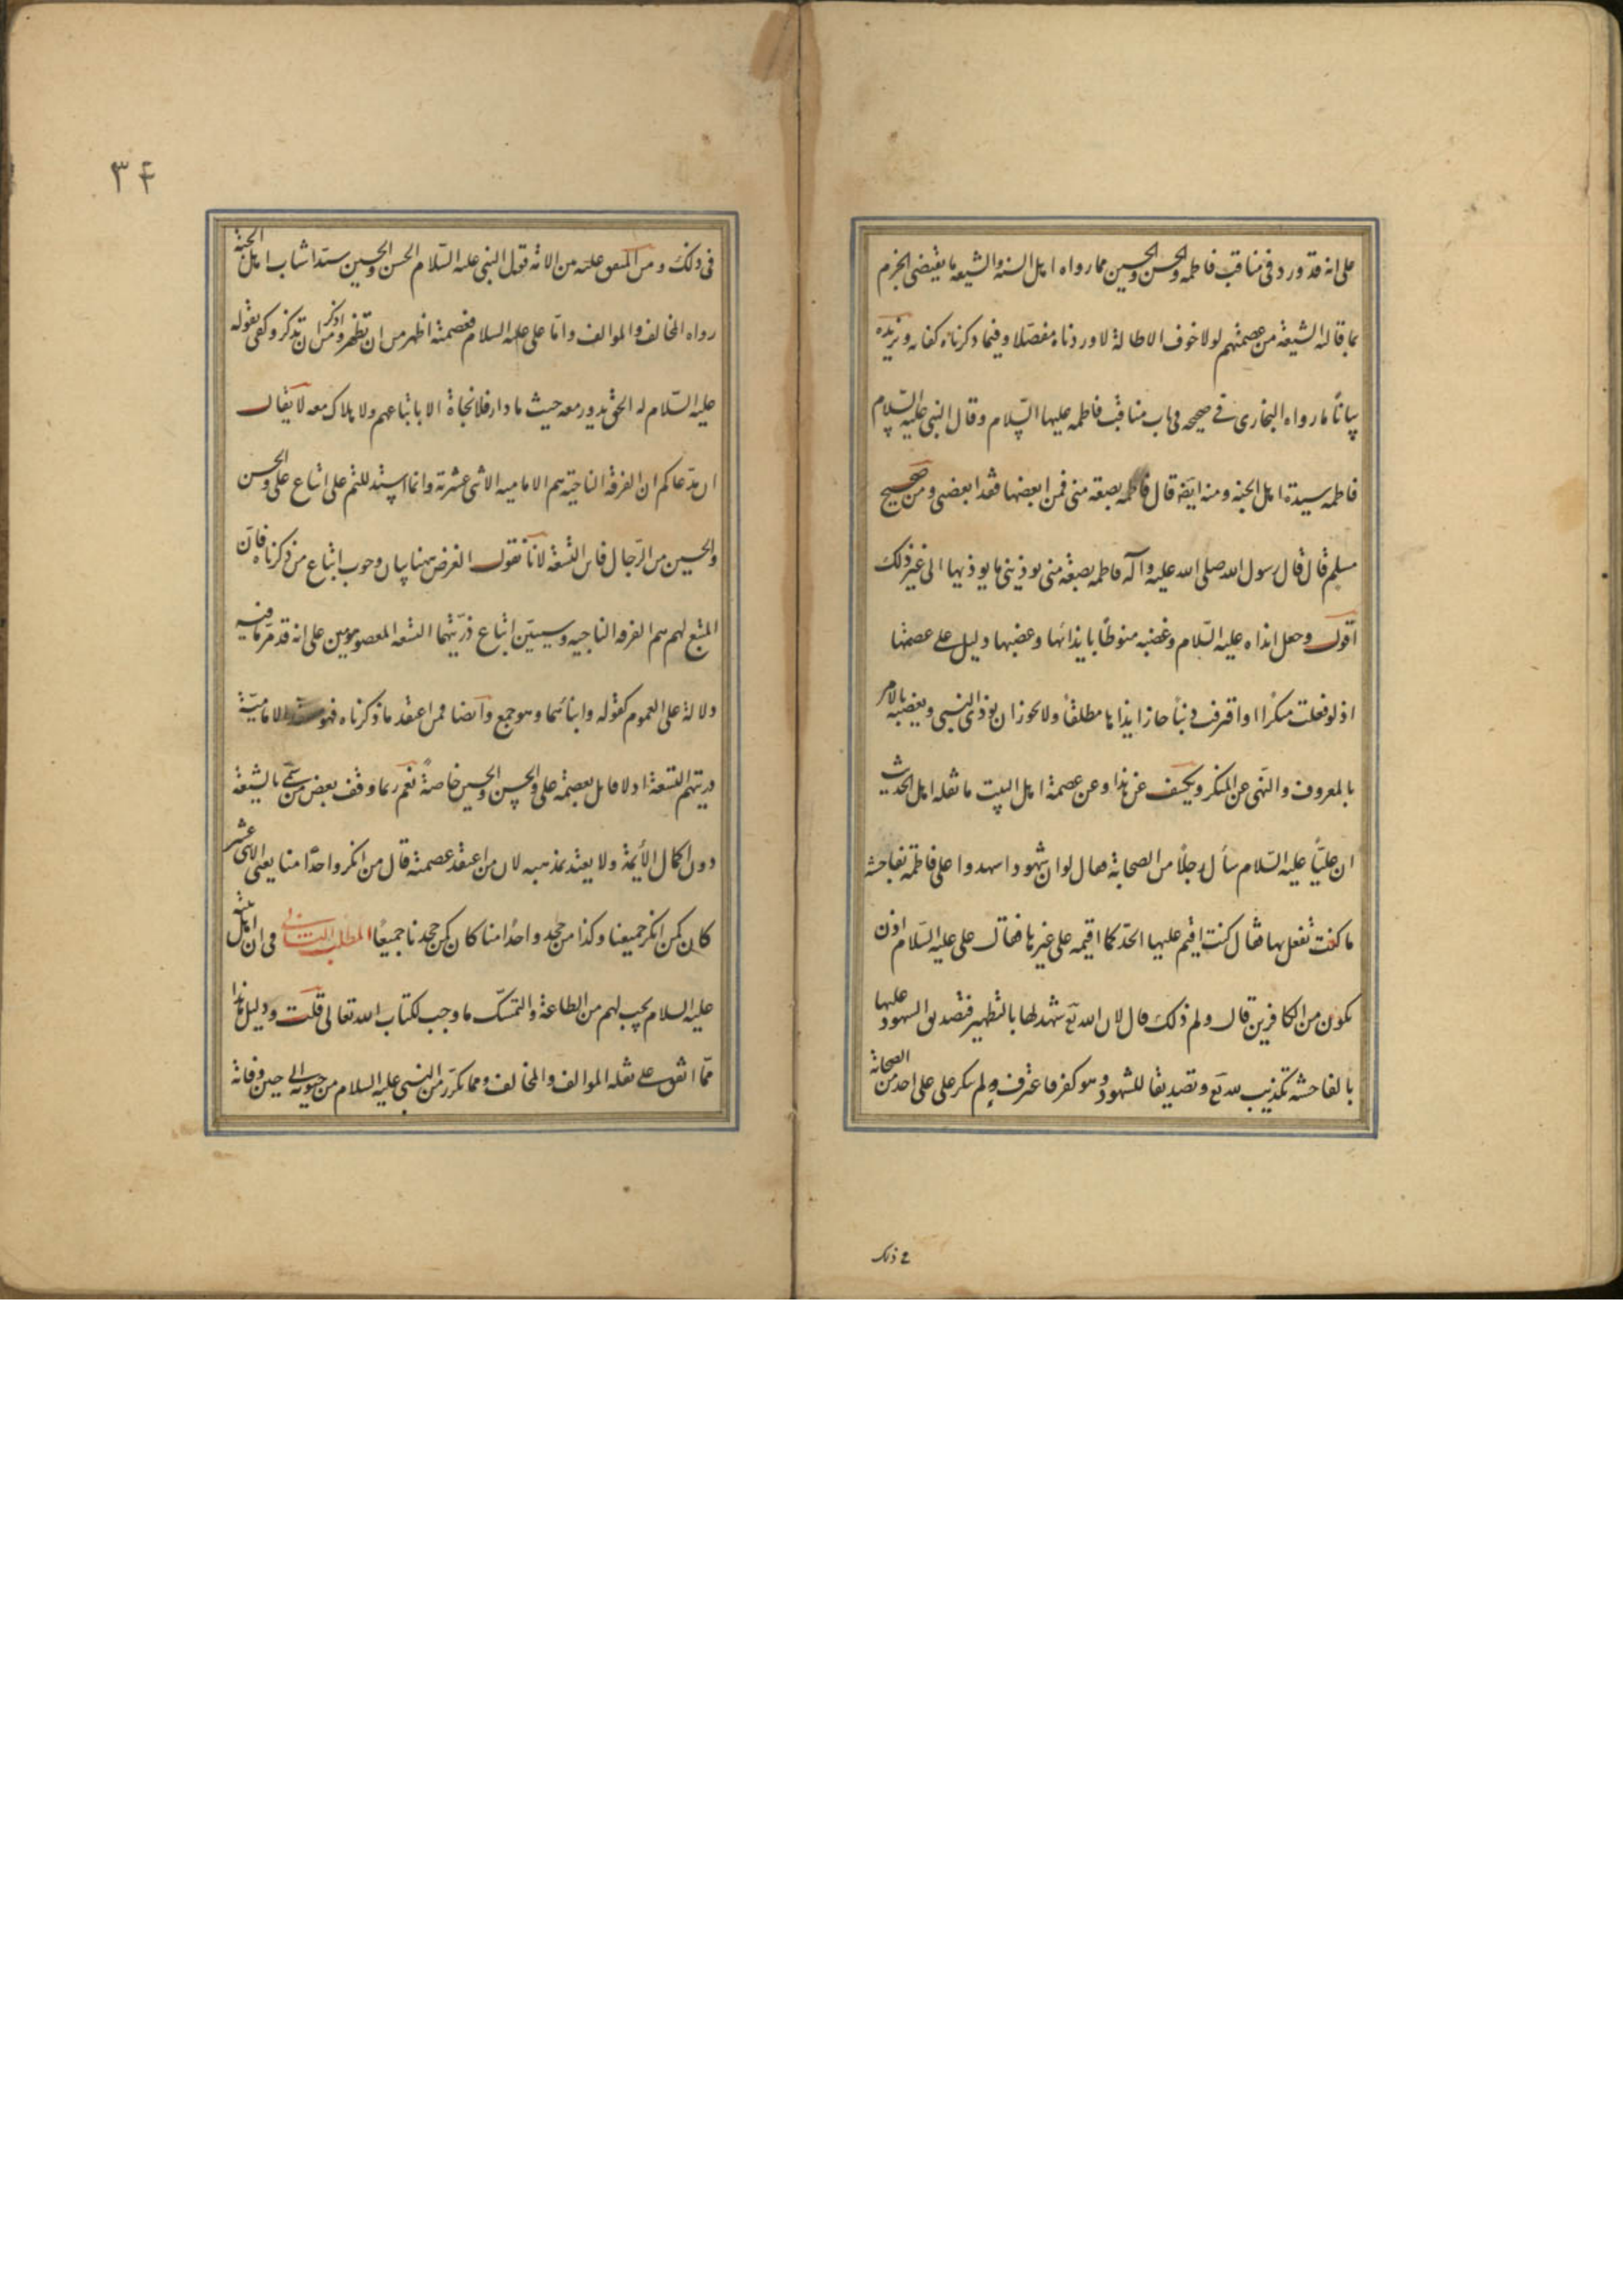 على انه قد ورد فى مناقب فاطمه والحسن والحسين مما رواه اهل السنه والشيعه ما يقتضى الجزم
بما قالته الشيعة من عصمتهم لولا خوف الاطالة لاوردناه مفصلا وفيما ذكرناه كفايه ونزيده
بيانا ما رواه البخارى فى صحيحه فى باب مناقب فاطمه عليها السلام وقال النبى عليه السلام
فاطمه سيدة اهل الجنه ومنه ايضا قال فاطمه بضعة منى فمن ابغضها فقد ابغضنى ومن صحيح
مسلم قال قال رسول الله صلى الله عليه وآله فاطمه بضعة منى يوذينى ما يوذيها الى غير ذلك
اقول وجعل ايذاه عليه السلام وغضبه منوطا بايذائها وغضبها دليل على عصمتها
اذ لو فعلت منكرا او اقترف ذنبا جاز ايذاها مطلقا ولا يجوز ان يوذى النبى ويغضبه بالامر
بالمعروف والنهى عن المنكر ويكشف عن هذا وعن عصمة اهل البيت ما نقله اهل الحديث
ان عليا عليه السلام سأل رجلا من الصحابة فقال لو ان شهودا شهدوا على فاطمة بفاحشة
ما كنت تفعل بها فقال كنت اقيم عليها الحد كما اقيمه على غيرها فقال على عليه السلام اذن
تكون من الكافرين قال ولم ذلك قال لان الله تع شهد لها بالتطهير فتصديق الشهود عليها
بالفاحشه تكذيب لله تع وتصديقا للشهود وهو كفر فاعترف ولم ينكر على على احد من الصحابة
فى ذلك
٣٤
فى ذلك ومن المتفق عليه من الامة قول النبى عليه السلام الحسن والحسين سيدا شباب اهل الجنة
رواه المخالف والموالف واما على عليه السلام فعصمته اظهر من ان تظهر واذكر من ان تذكر وكفى بقوله
عليه السلام له الحق يدور معه حيث ما دار فلا نجاة الا باتباعهم ولا هلاك معه لا يقال
ان مدعاكم ان الفرقة الناجية هم الامامية الاثنى عشرية وانما استدللتم على اتباع على والحسن
والحسين من الرجال فاين التسعة لانا نقول الغرض ههنا بيان وجوب اتباع من ذكرناه فان
المتبع لهم هم الفرقة الناجيه وسيبين اتباع ذريتهما التسعه المعصومين على انه قد مر ما فيه
دلالة على العموم كقوله وابنائهما وهو جمع وايضا فمن اعتقد ما ذكرناه فهو الامامية
وذريتهم التسعة اذ لا قايل بعصمة على والحسن والحسين خاصة نعم ربما وقف بعض من سمى بالشيعة
دون اكمال الأيمة ولا يعتد بمذهبه لان من اعتقد عصمته قال من انكر واحدا منا يعنى الاثنى عشر
كان كمن انكر جميعنا وكذا من جحد واحدا منا كان كمن جحدنا جميعا المطلب الثانى فى ان اهل بيته
عليه السلام يجب لهم من الطاعة والتمسك ما وجب لكتاب الله تعالى قلت ودليل هذا
مما اتفق على نقله الموالف والمخالف ومما تكرر من النبى عليه السلام من حيوته الى حين وفاته